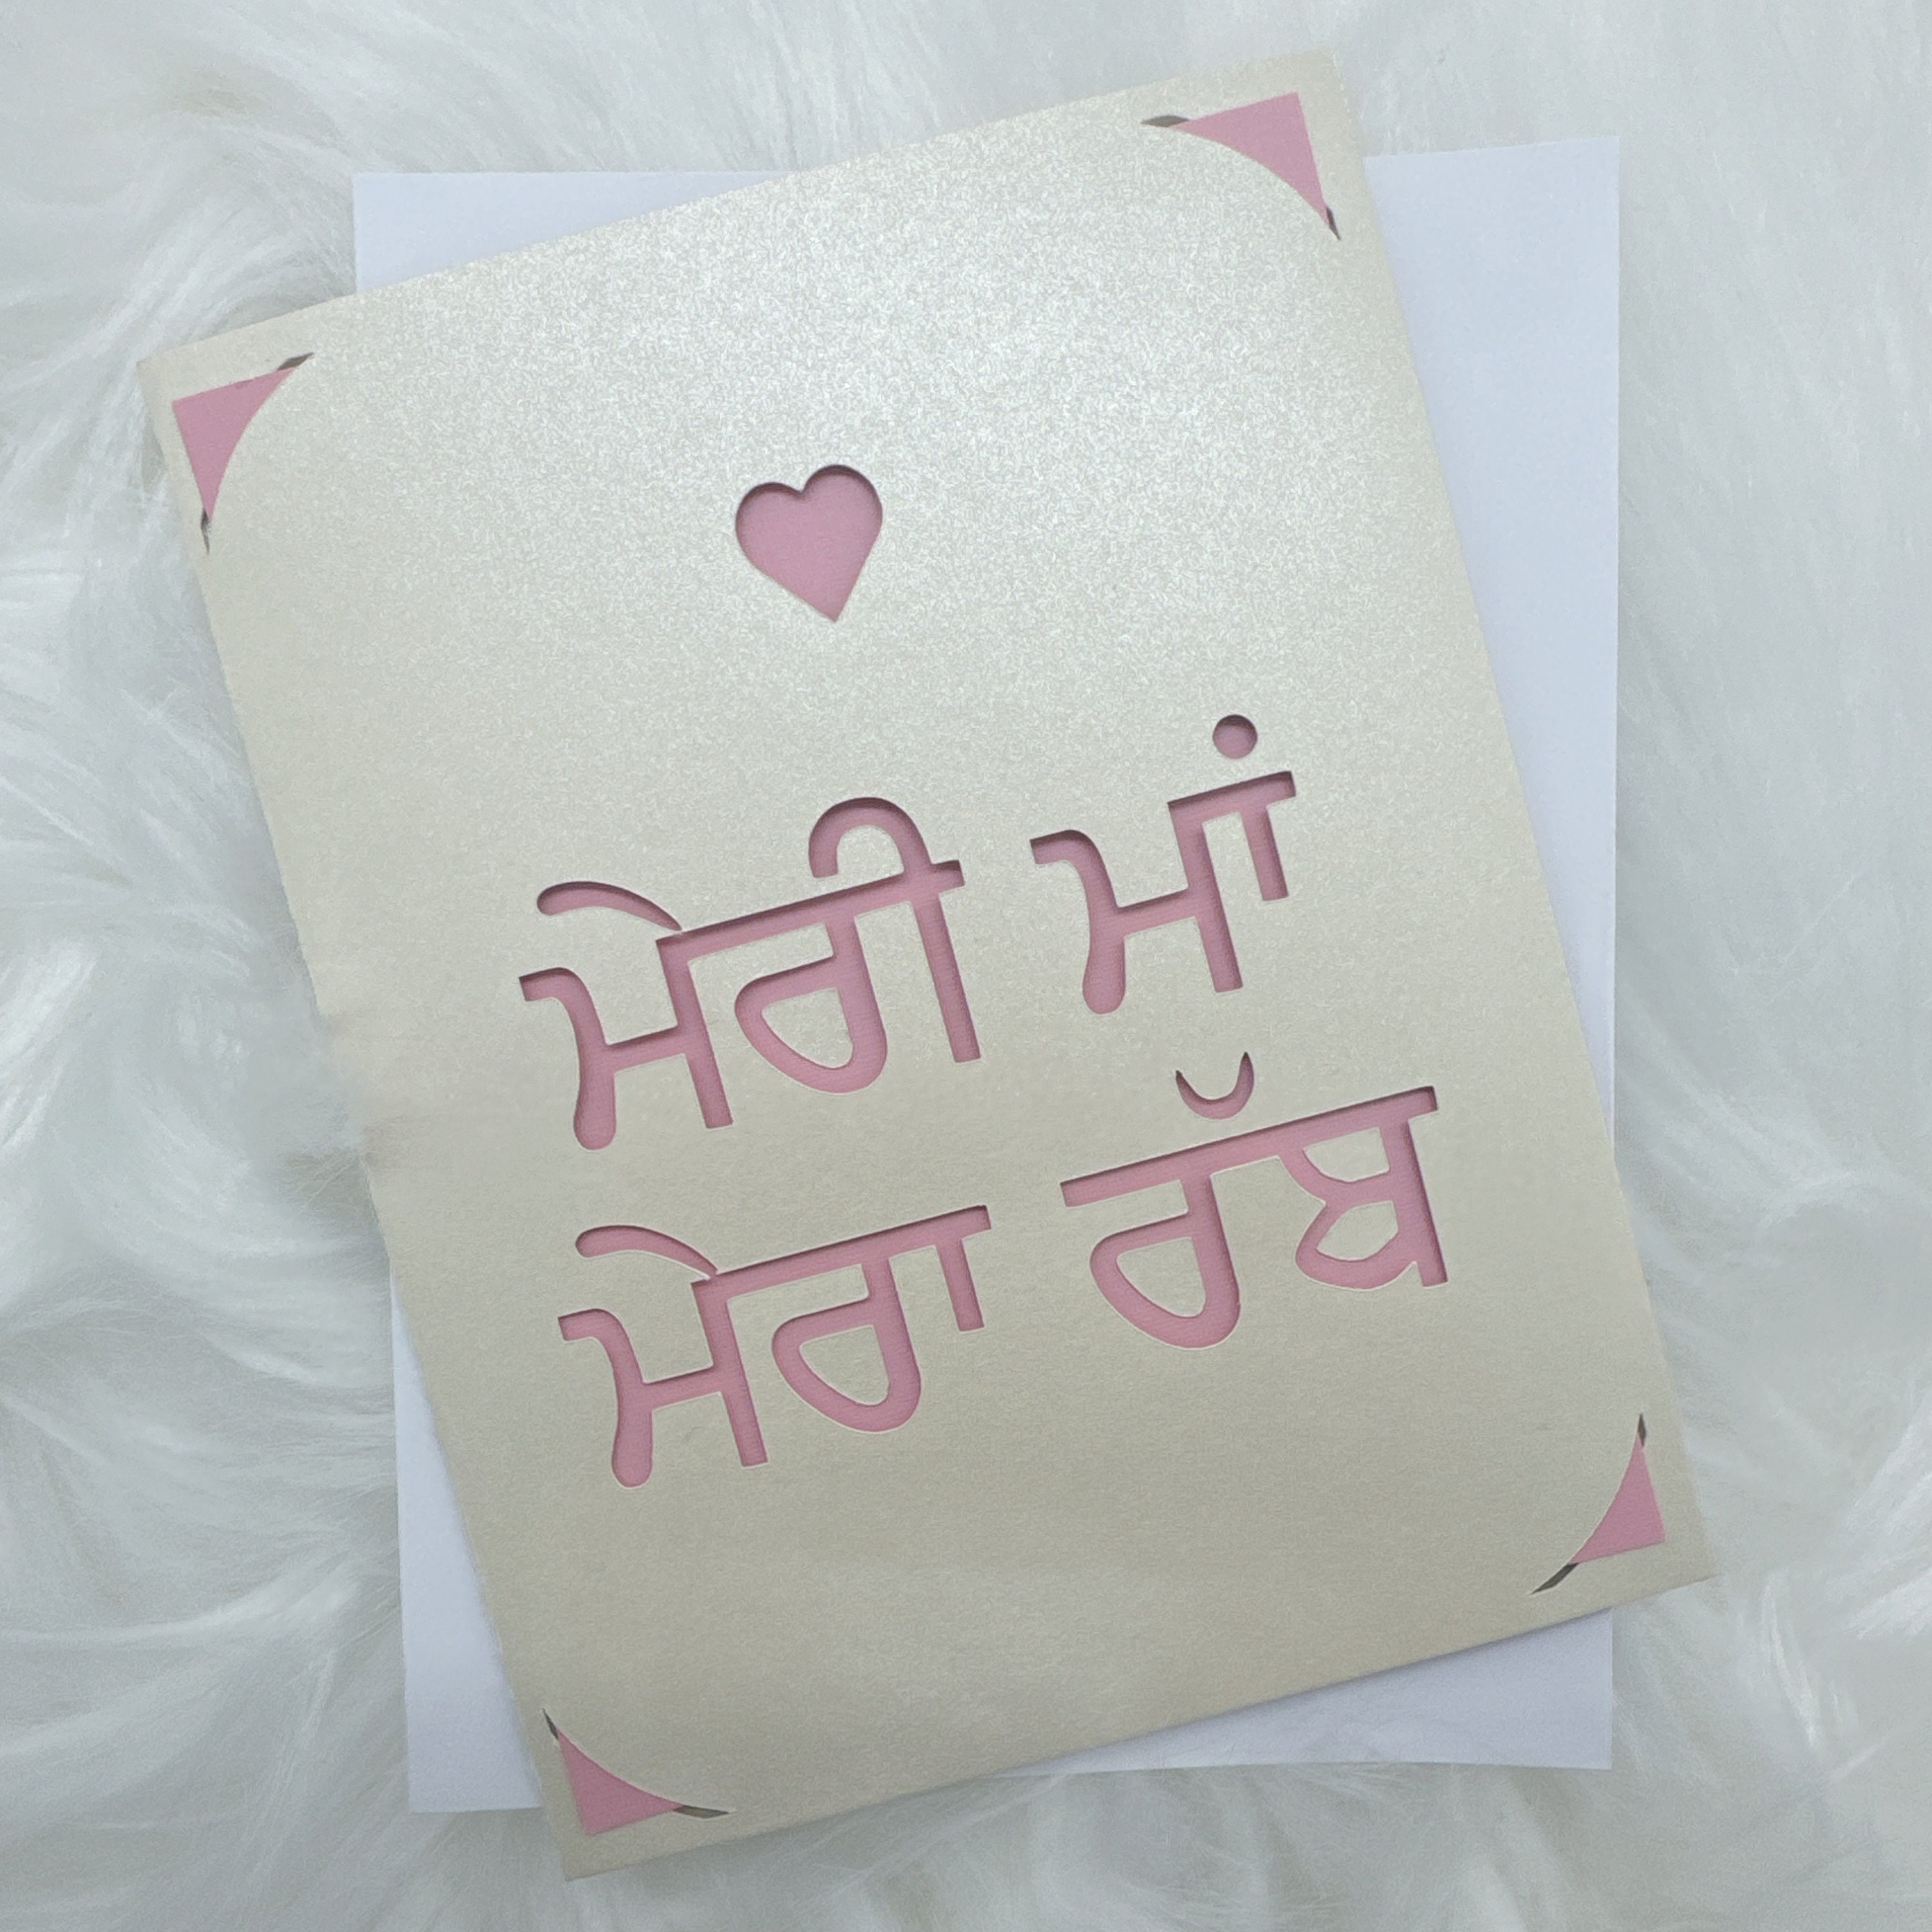 ਮੇਰੀ ਮਾਂ
ਮੇਰਾ ਰੱਬ